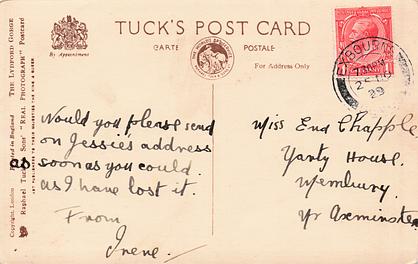 TUCK'S POST CARD
CARTE POSTALE
For Address Only
By Appointment
THE LYDFORD GORGE
Raphael Tuck & Sons' "REAL PHOTOGRAPH" Postcard
Copyright, London Printed in England
29
Would you please send
on Jessie's address
as soon as you could.
as I have lost it.
From
Irene.
Miss Enid Chapple
Yanty House.
Membury.
Nr Axminster